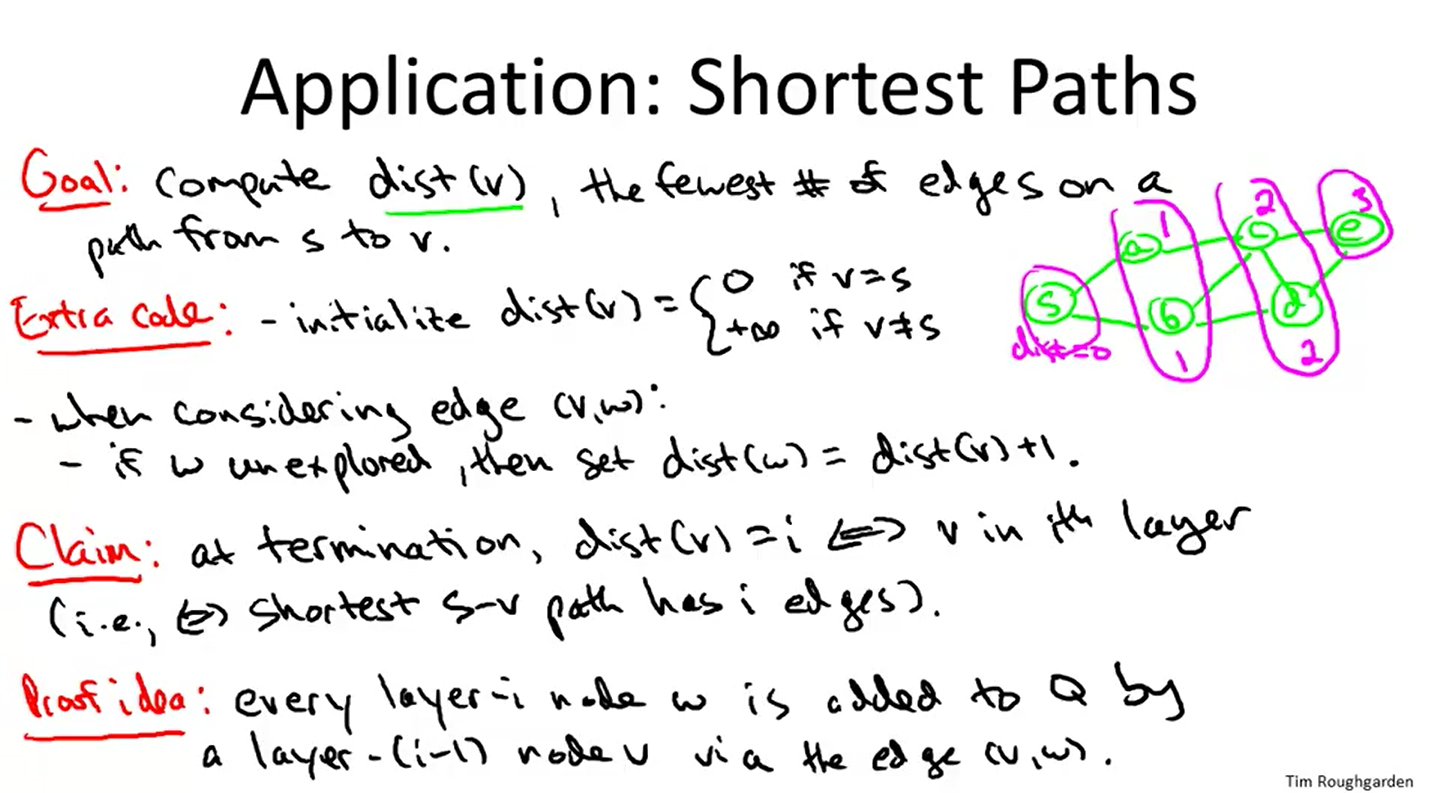 Application: Shortest Paths
Goal: compute dist(v), the fewest # of edges on a
path from s to v.
Extra code: - initialize dist(v) = { 0 if v=s
+∞ if v≠s
- when considering edge (v,w):
- if w unexplored, then set dist(w) = dist(v)+1.
Claim: at termination, dist(v)=i <=> v in ith layer
(i.e., <=> shortest s-v path has i edges).
Proof idea: every layer-i node w is added to Q by
a layer-(i-1) node v via the edge (v,w).
s
dist=0
a
1
b
1
c
2
d
2
e
3
Tim Roughgarden